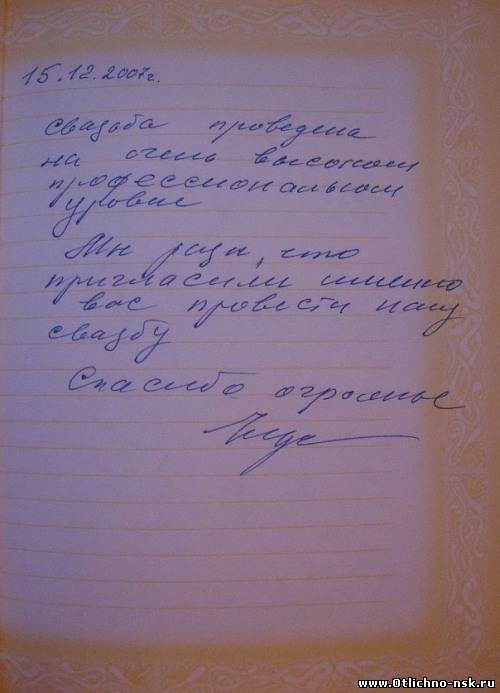 15.12.2007г.
свадьба проведена
на очень высоком
профессиональном
уровне
Мы рады, что
пригласили именно
вас провести нашу
свадбу
Спасибо огромное
www.Otlichno-nsk.ru